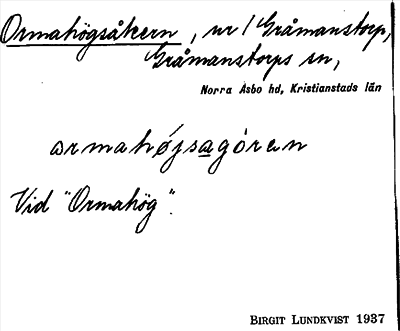 Ormahögsåkern, nr 1 Gråmanstorp,
Gråmanstorps sn,
Norra Åsbo hd, Kristianstads län
ormahøjsagóran
Vid "Ormahög".
BIRGIT LUNDKVIST 1937